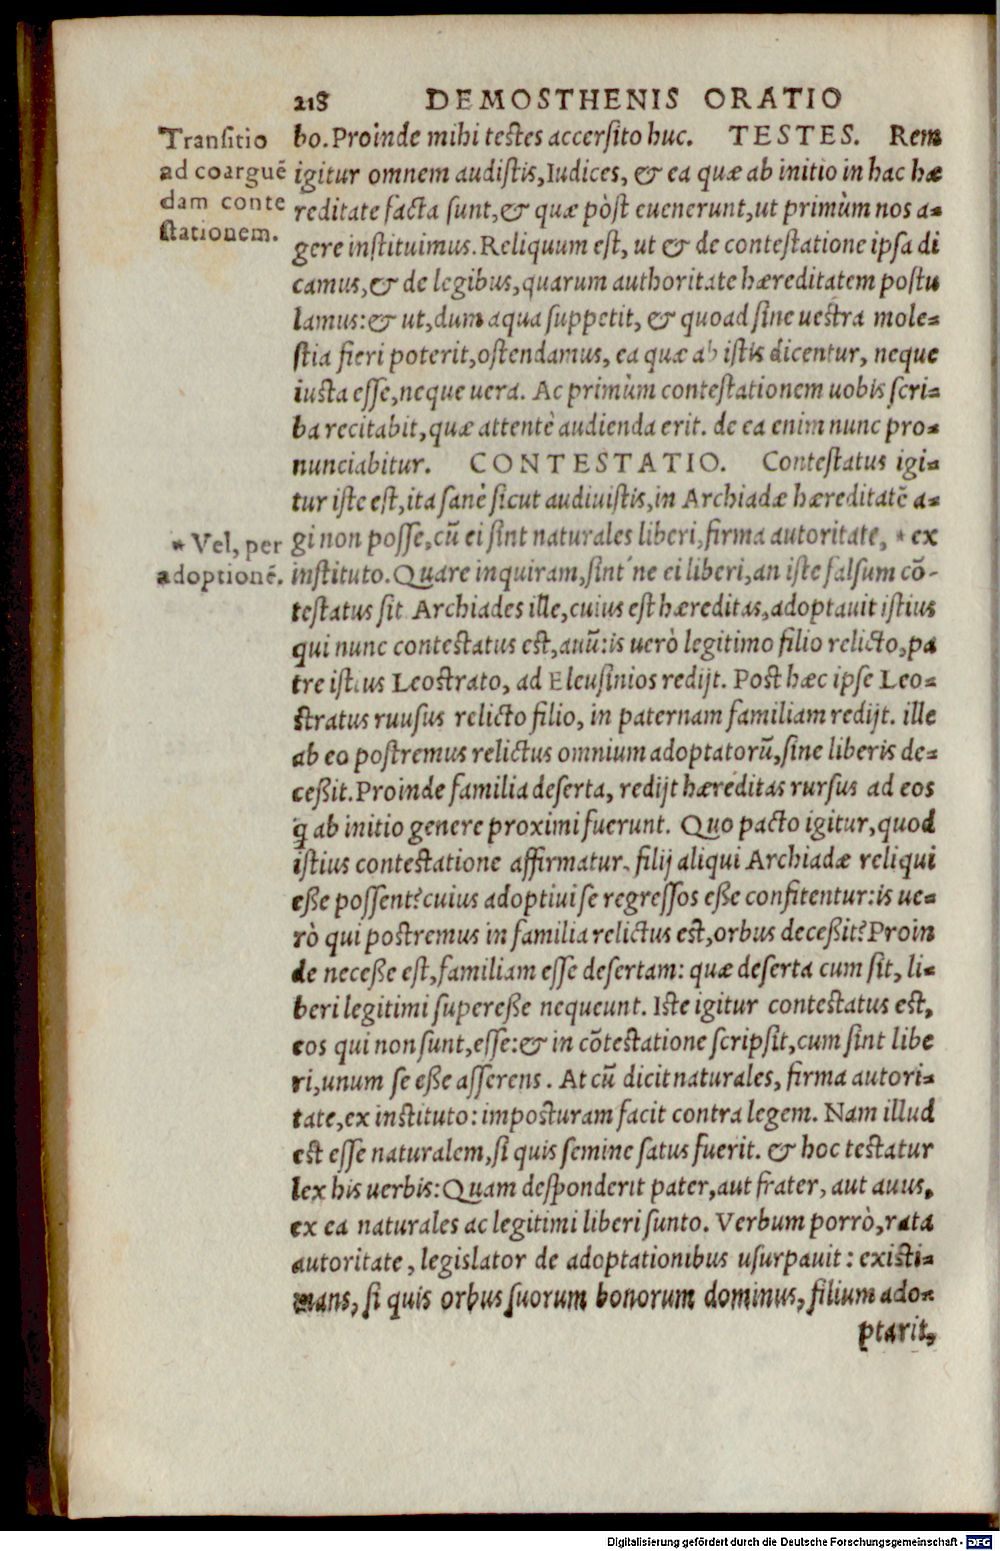 218 DEMOSTHENIS ORATIO
Transitio
ad coarguē
dam conte
stationem.
bo. Proinde mihi testes accersito huc. TESTES. Rem
igitur omnem audistis, Iudices, & ea quæ ab initio in hac hæ
reditate facta sunt, & quæ pòst euenerunt, ut primùm nos a-
gere instituimus. Reliquum est, ut & de contestatione ipsa di
camus, & de legibus, quarum authoritate hæreditatem postu
lamus: & ut, dum aqua suppetit, & quoad sine uestra mole-
stia fieri poterit, ostendamus, ea quæ ab istis dicentur, neque
iusta esse, neque uera. Ac primùm contestationem uobis scri-
ba recitabit, quæ attentè audienda erit. de ea enim nunc pro-
nunciabitur. CONTESTATIO. Contestatus igi-
tur iste est, ita sanè sicut audiuistis, in Archiadæ hæreditatē a-
* Vel, per
adoptionē.
gi non posse, cū ei sint naturales liberi, firma autoritate, * ex
instituto. Quare inquiram, sint´ne ei liberi, an iste falsum cō-
testatus sit. Archiades ille, cuius est hæreditas, adoptauit istius
qui nunc contestatus est, auū: is uerò legitimo filio relicto, pa
tre istius Leostrato, ad Eleusinios redijt. Post hæc ipse Leo-
stratus ruusus relicto filio, in paternam familiam redijt. ille
ab eo postremus relictus omnium adoptatorū, sine liberis de-
ceßit. Proinde familia deserta, redijt hæreditas rursus ad eos
q̄ ab initio genere proximi fuerunt. Quo pacto igitur, quod
istius contestatione affirmatur, filij aliqui Archiadæ reliqui
eße possent? cuius adoptiui se regressos eße confitentur: is ue-
rò qui postremus in familia relictus est, orbus deceßit? Proin
de neceße est, familiam esse desertam: quæ deserta cum sit, li-
beri legitimi supereße nequeunt. Iste igitur contestatus est,
eos qui non sunt, esse: & in cōtestatione scripsit, cum sint libe
ri, unum se eße asserens. At cū dicit naturales, firma autori-
tate, ex instituto: imposturam facit contra legem. Nam illud
est esse naturalem, si quis semine satus fuerit. & hoc testatur
lex his uerbis: Quam desponderit pater, aut frater, aut auus,
ex ea naturales ac legitimi liberi sunto. Verbum porrò, rata
autoritate, legislator de adoptationibus usurpauit: existi-
mans, si quis orbus suorum bonorum dominus, filium ado-
ptarit,
Digitalisierung gefördert durch die Deutsche Forschungsgemeinschaft - DFG